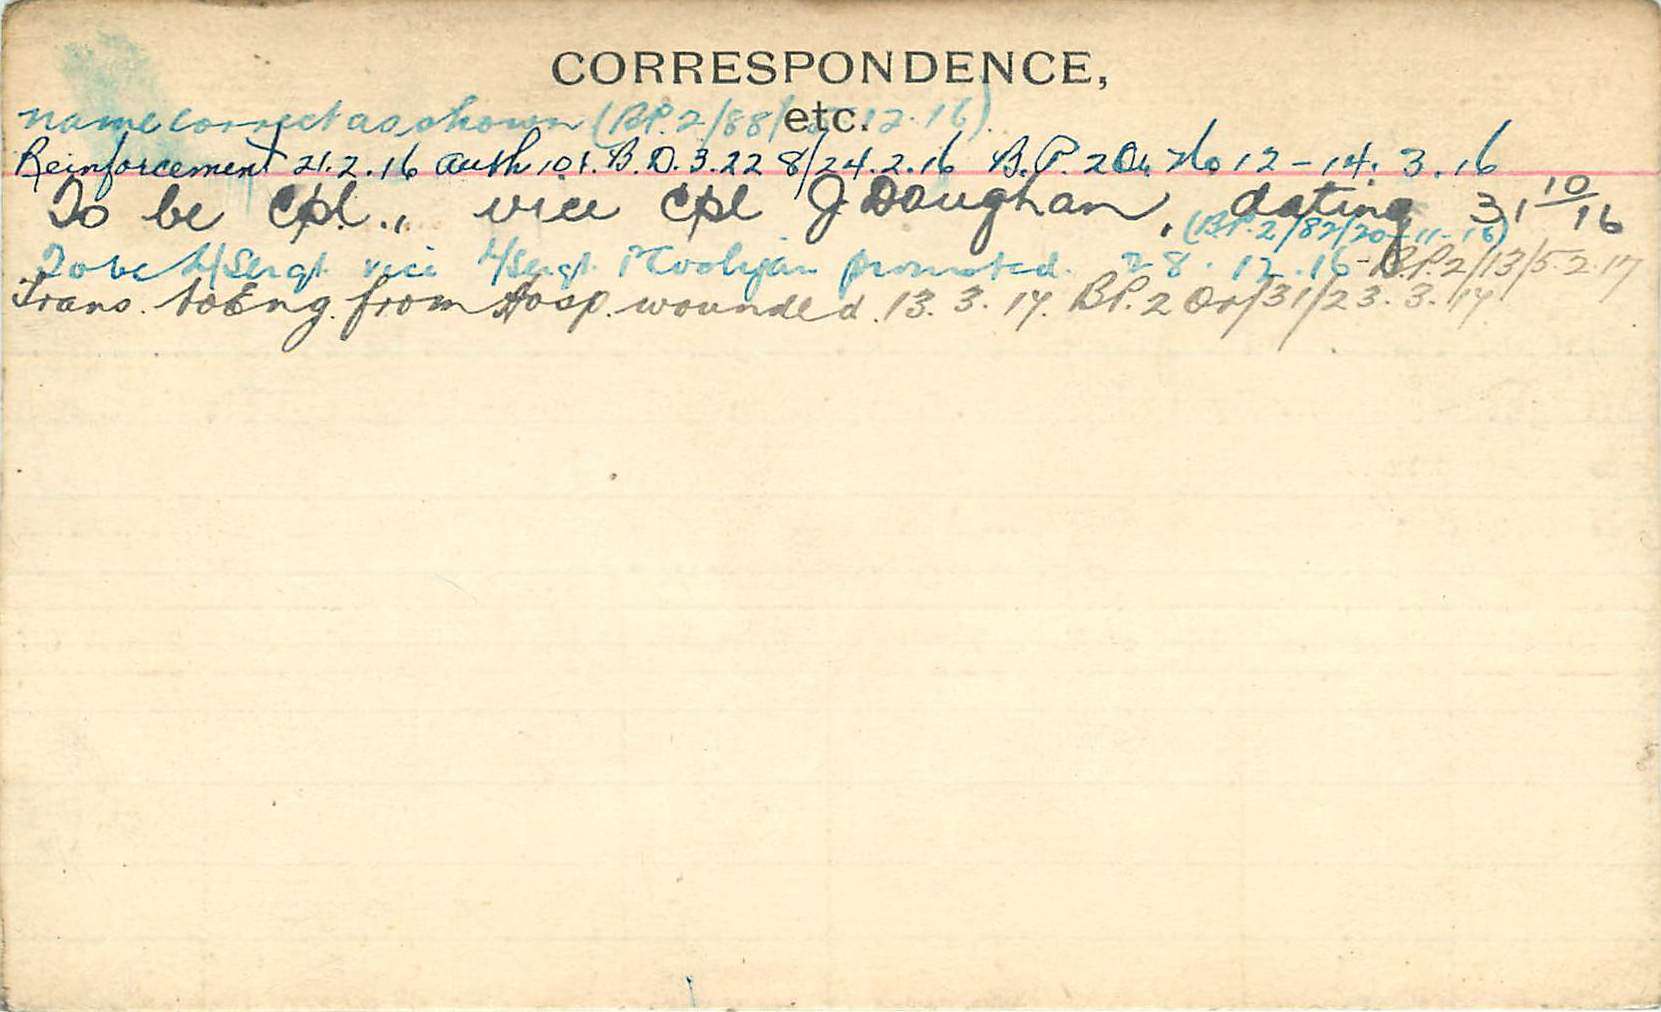 CORRESPONDENCE,
etc.
name correct as shown (BP.2/88/ 12.16)
Reinforcement 21.2.16 auth 101.B.D.3.22 8/24.2.16 B.P. 2 Or No 12-14.3.16
To be Cpl., vice Cpl J Doughan, dating 31 10/16
(BP.2/82/20-11-16)
To be L/Sergt. vice L/Sergt. promoted. 28.12.16 - BP.2/13/5.2.17
Trans. to Eng. from Hosp. wounded 13.3.17. BP.2 Or/31/23.3.17